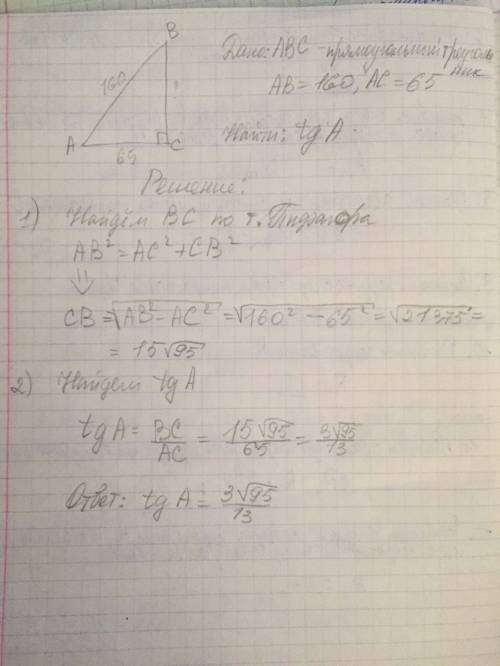 B
160
A
65
C
Дано: ABC - прямоугольный треуголь
ник
AB = 160, AC = 65
Найти: tg A.
Решение:
1) Найдём BC по т. Пифагора
AB² = AC² + CB²
⇓
CB = √AB² - AC² = √160² - 65² = √21375 =
= 15√95
2) Найдем tg A
tg A = BC/AC = 15√95/65 = 3√95/13
Ответ: tg A = 3√95/13